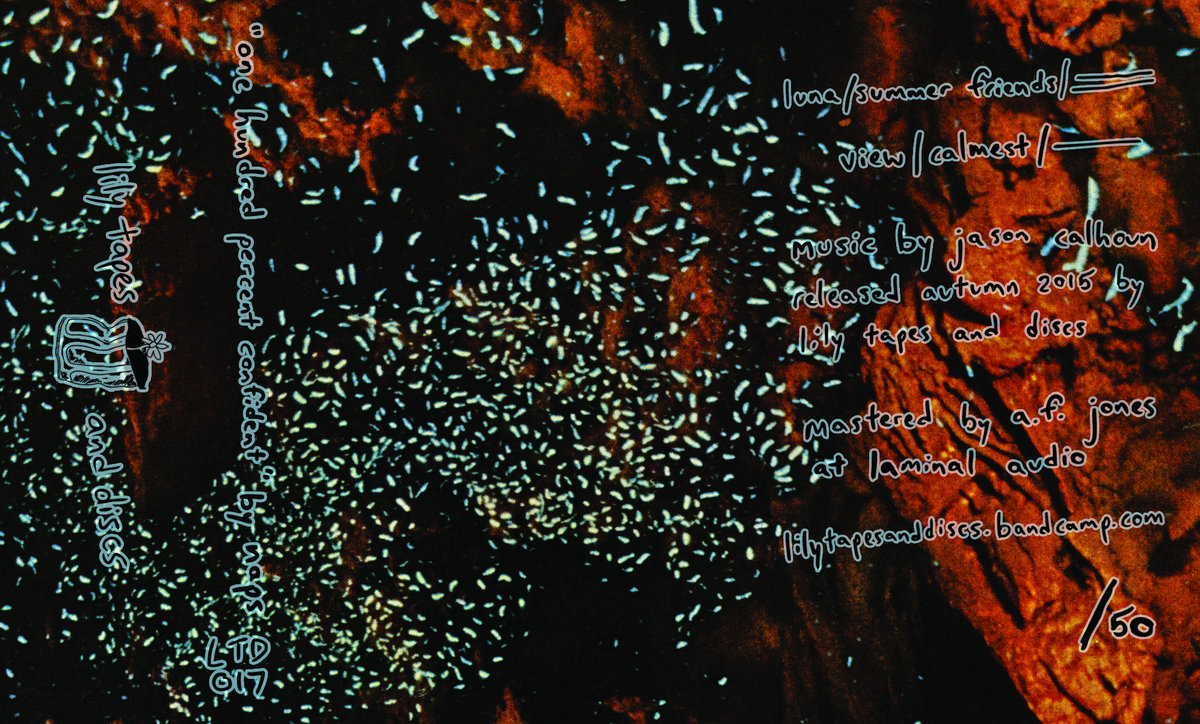 lily tapes
and discs
"one hundred percent confident" by naps
LTD
L017
luna/summer friends/
view/calmest/
music by jason calhoun
released autumn 2015 by
lily tapes and discs
mastered by a.f. jones
at laminal audio
lilytapesanddiscs.bandcamp.com
/50